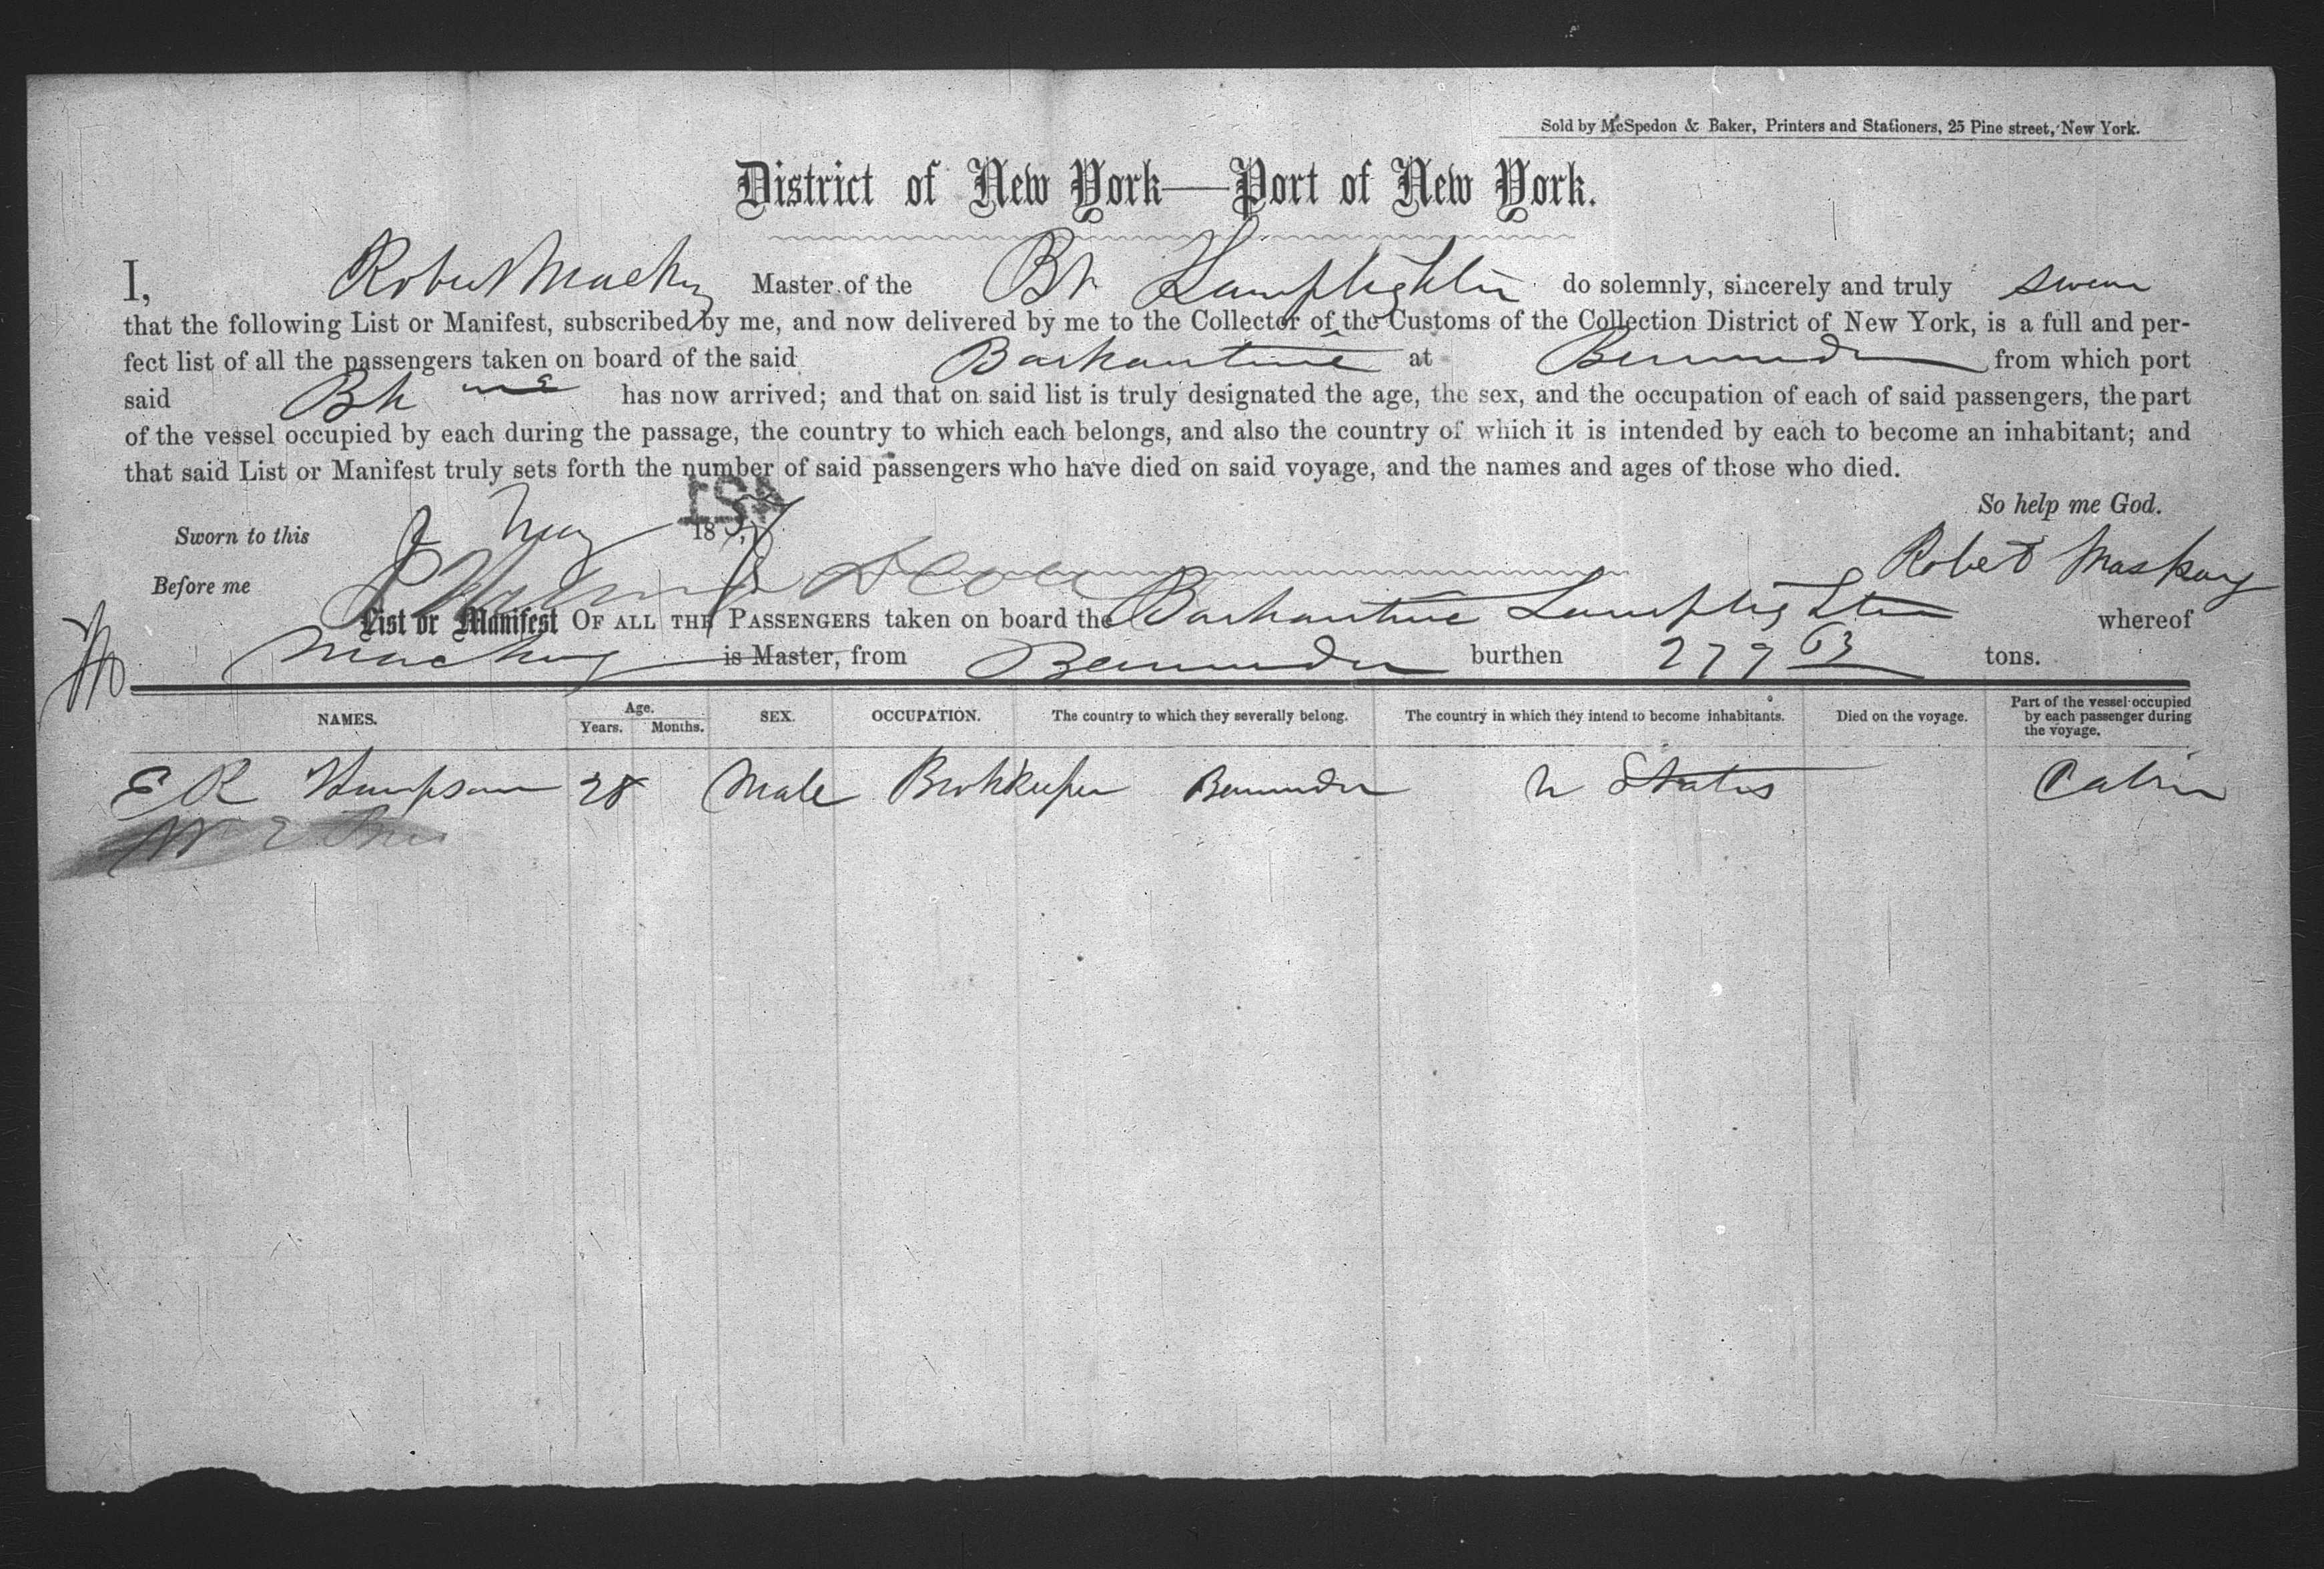 Sold by McSpedon & Baker, Printers and Stationers, 25 Pine street, New York.
District of New York—Port of New York.
I, Robert Mackey Master of the Bk Lamplighter do solemnly, sincerely and truly swear
that the following List or Manifest, subscribed by me, and now delivered by me to the Collector of the Customs of the Collection District of New York, is a full and per-
fect list of all the passengers taken on board of the said Barkantine at Bermuda from which port
said Bk has now arrived; and that on said list is truly designated the age, the sex, and the occupation of each of said passengers, the part
of the vessel occupied by each during the passage, the country to which each belongs, and also the country of which it is intended by each to become an inhabitant; and
that said List or Manifest truly sets forth the number of said passengers who have died on said voyage, and the names and ages of those who died.
So help me God.
Sworn to this May 1857
421
Robert Maskey
Before me
List or Manifest OF ALL THE PASSENGERS taken on board the Barkantine Lamplighter whereof
Mackey is Master, from Bermuda burthen 279 63 tons.
NAMES. Age. Years. Months. SEX. OCCUPATION. The country to which they severally belong. The country in which they intend to become inhabitants. Died on the voyage. Part of the vessel occupied by each passenger during the voyage.
E R Thompson 28 Male Bookkeeper Bermuda U States Cabin